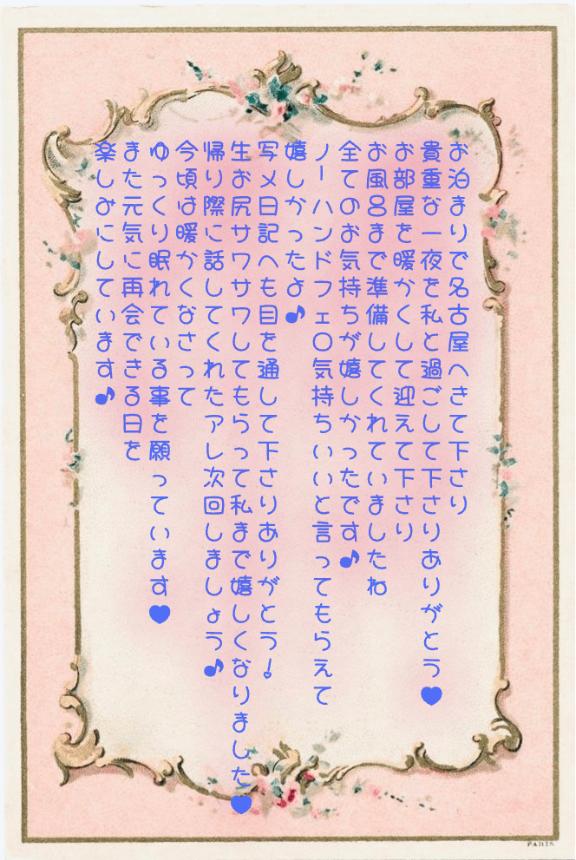 お泊まりで名古屋へきて下さり
貴重な一夜を私と過ごして下さりありがとう♥
お部屋を暖かくして迎えて下さり
お風呂まで準備してくれていましたね
全てのお気持ちが嬉しかったです♪
ノーハンドフェ〇気持ちいいと言ってもらえて
嬉しかったよ♪
写メ日記へも目を通して下さりありがとう!
生お尻サワサワしてもらって私まで嬉しくなりました♥
帰り際に話してくれたアレ次回しましょう♪
今頃は暖かくなさって
ゆっくり眠れている事を願っています♥
また元気に再会できる日を
楽しみにしています♪
PARIS